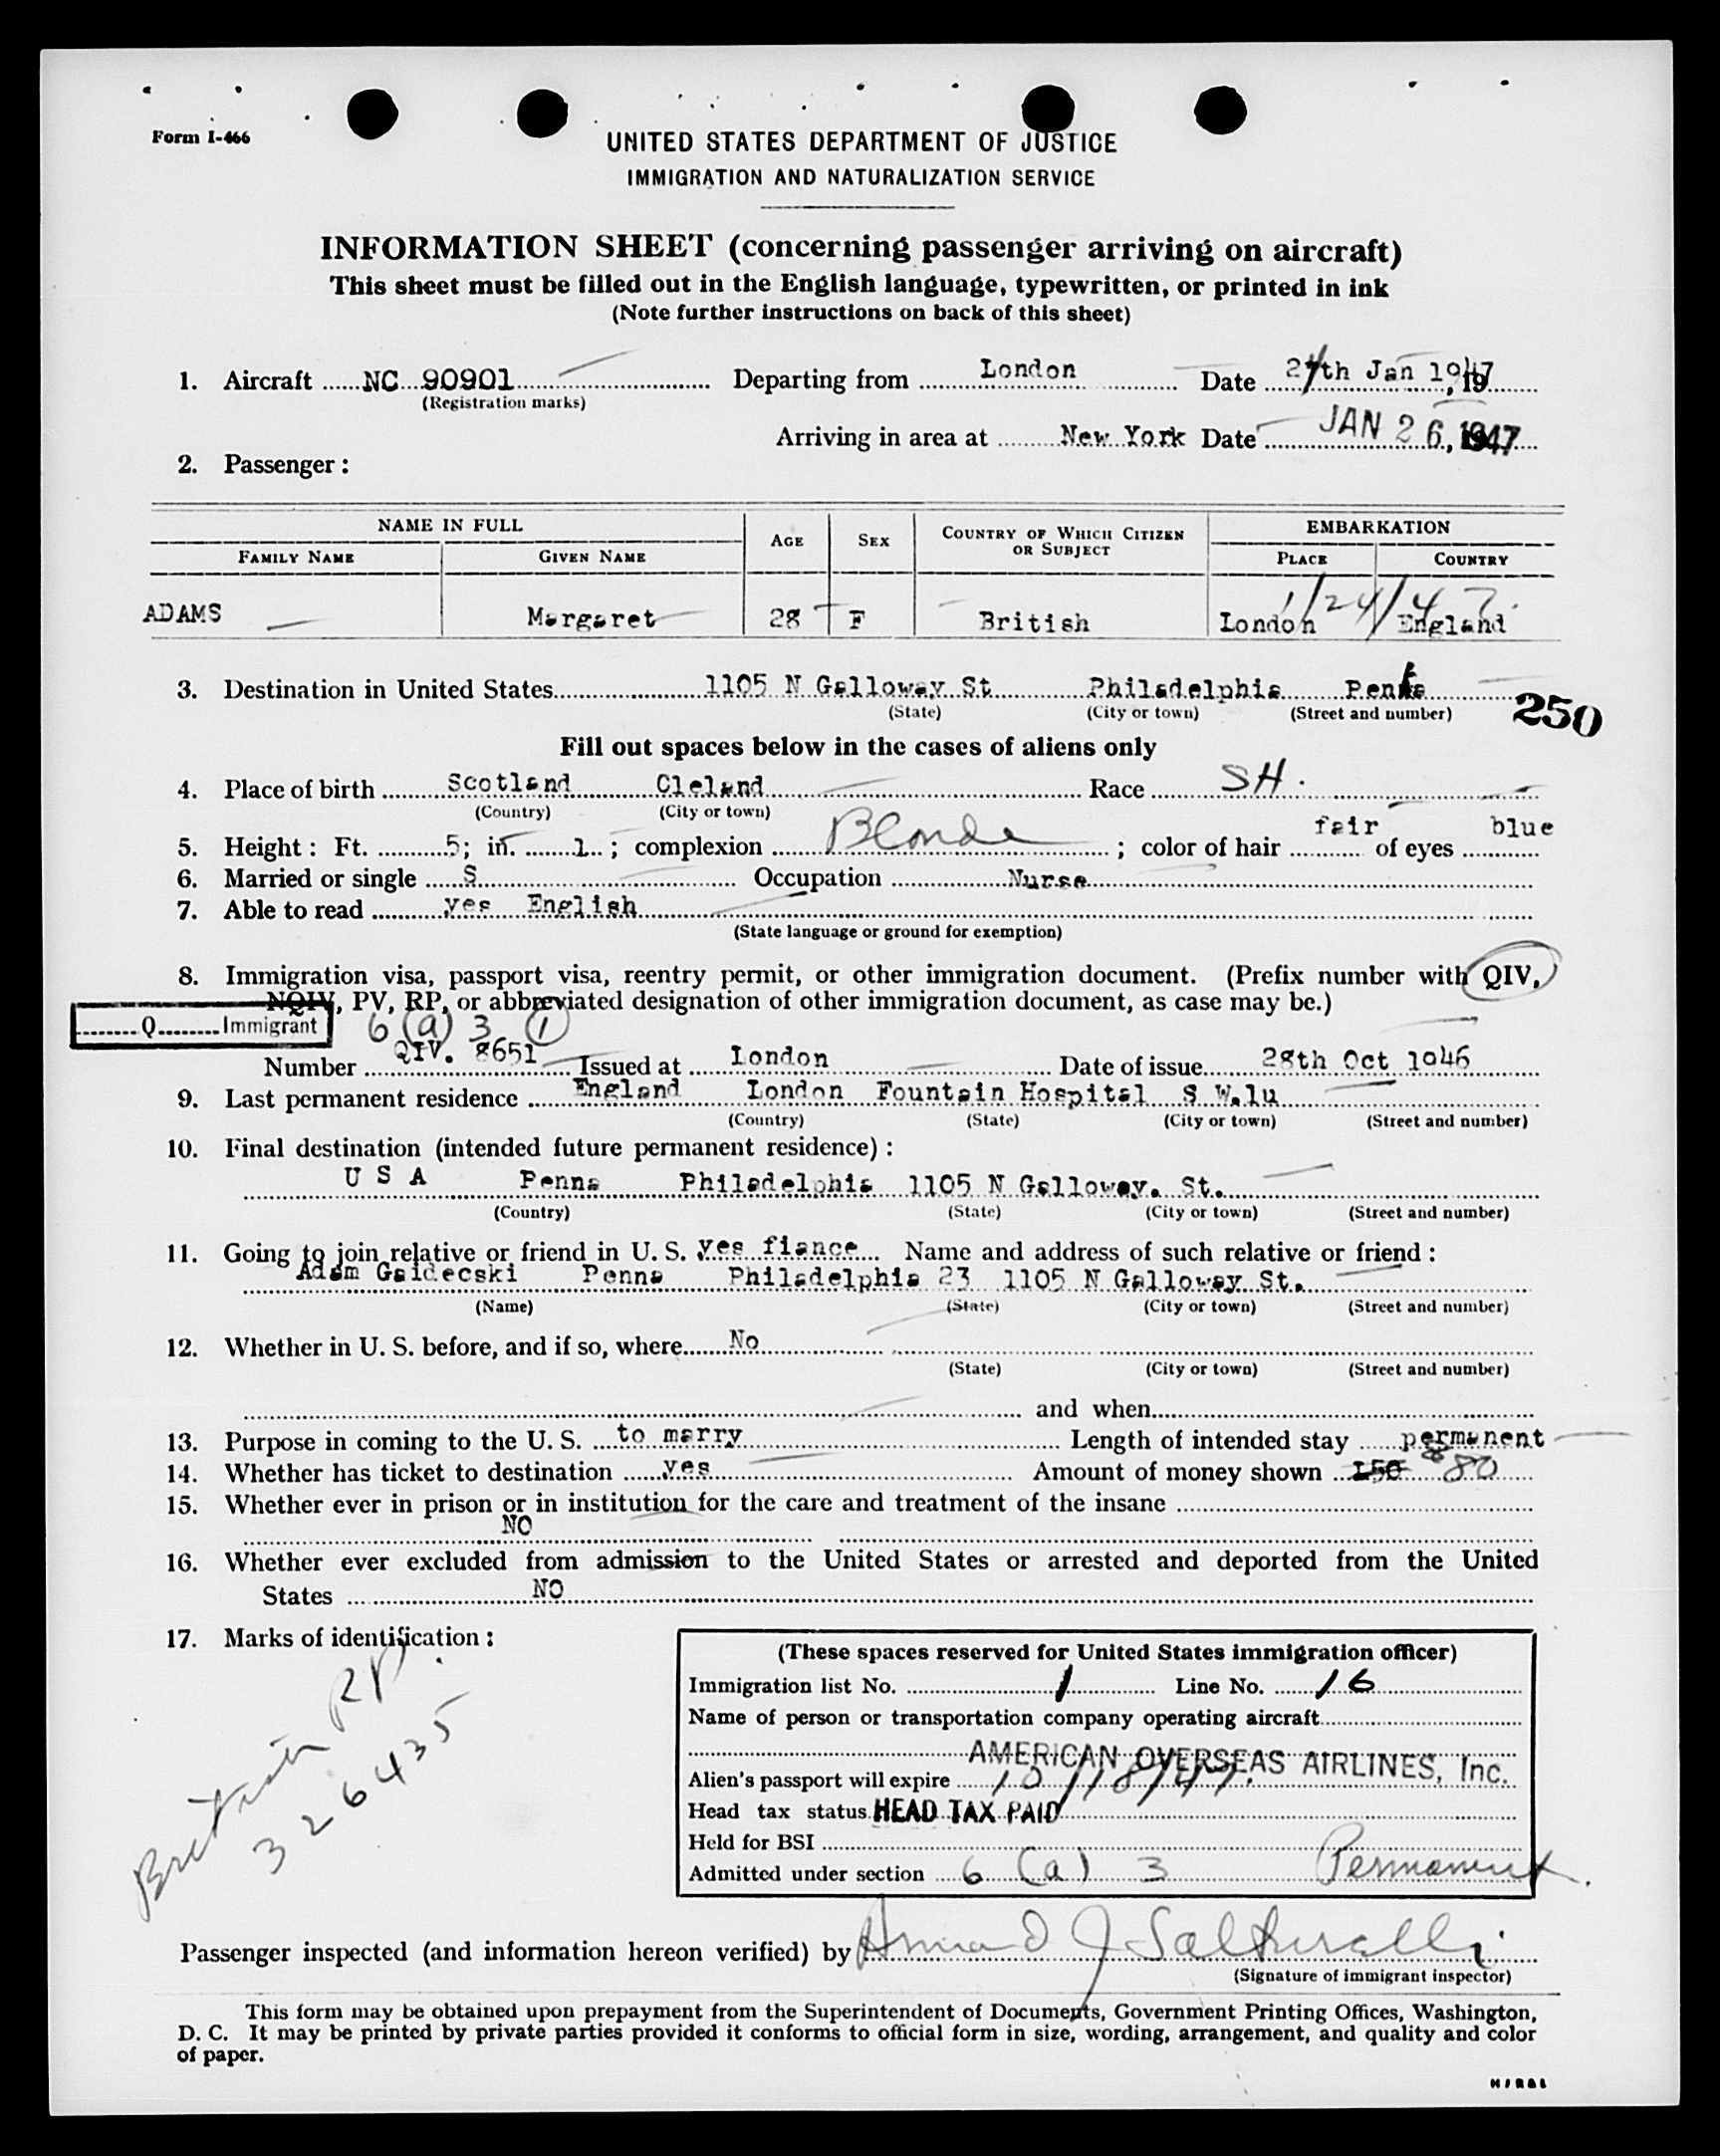 Form I-466
UNITED STATES DEPARTMENT OF JUSTICE
IMMIGRATION AND NATURALIZATION SERVICE
INFORMATION SHEET (concerning passenger arriving on aircraft)
This sheet must be filled out in the English language, typewritten, or printed in ink
(Note further instructions on back of this sheet)
1. Aircraft NC 90901 Departing from London Date 24th Jan 1947
(Registration marks)
Arriving in area at New York Date JAN 26, 1947
2. Passenger:
NAME IN FULL AGE SEX COUNTRY OF WHICH CITIZEN OR SUBJECT EMBARKATION
FAMILY NAME GIVEN NAME PLACE COUNTRY
1/24/47.
ADAMS Margaret 28 F British London England
3. Destination in United States 1105 N Galloway St Philadelphia Penna
(State) (City or town) (Street and number) 250
Fill out spaces below in the cases of aliens only
4. Place of birth Scotland Cleland Race SH.
(Country) (City or town)
5. Height: Ft. 5; in. 1; complexion Blonde; color of hair fair of eyes blue
6. Married or single S Occupation Nurse
7. Able to read yes English
(State language or ground for exemption)
8. Immigration visa, passport visa, reentry permit, or other immigration document. (Prefix number with QIV,
NQIV, PV, RP, or abbreviated designation of other immigration document, as case may be.)
Q Immigrant 6 (a) 3 1
Number QIV. 8651 Issued at London Date of issue 28th Oct 1946
9. Last permanent residence England London Fountain Hospital S.W.lu
(Country) (State) (City or town) (Street and number)
10. Final destination (intended future permanent residence):
U S A Penna Philadelphia 1105 N Galloway. St.
(Country) (State) (City or town) (Street and number)
11. Going to join relative or friend in U. S. yes fiance Name and address of such relative or friend:
Adam Gaidecski Penna Philadelphia 23 1105 N Galloway St.
(Name) (State) (City or town) (Street and number)
12. Whether in U. S. before, and if so, where No
(State) (City or town) (Street and number)
and when
13. Purpose in coming to the U. S. to marry Length of intended stay permanent
14. Whether has ticket to destination yes Amount of money shown 150 $80
15. Whether ever in prison or in institution for the care and treatment of the insane
NO
16. Whether ever excluded from admission to the United States or arrested and deported from the United
States NO
17. Marks of identification:
Brit RP.
326435
(These spaces reserved for United States immigration officer)
Immigration list No. 1 Line No. 16
Name of person or transportation company operating aircraft
AMERICAN OVERSEAS AIRLINES, Inc.
Alien's passport will expire 10/18/47.
Head tax status HEAD TAX PAID
Held for BSI
Admitted under section 6 (a) 3 Permanent.
Passenger inspected (and information hereon verified) by
(Signature of immigrant inspector)
This form may be obtained upon prepayment from the Superintendent of Documents, Government Printing Offices, Washington,
D. C. It may be printed by private parties provided it conforms to official form in size, wording, arrangement, and quality and color
of paper.